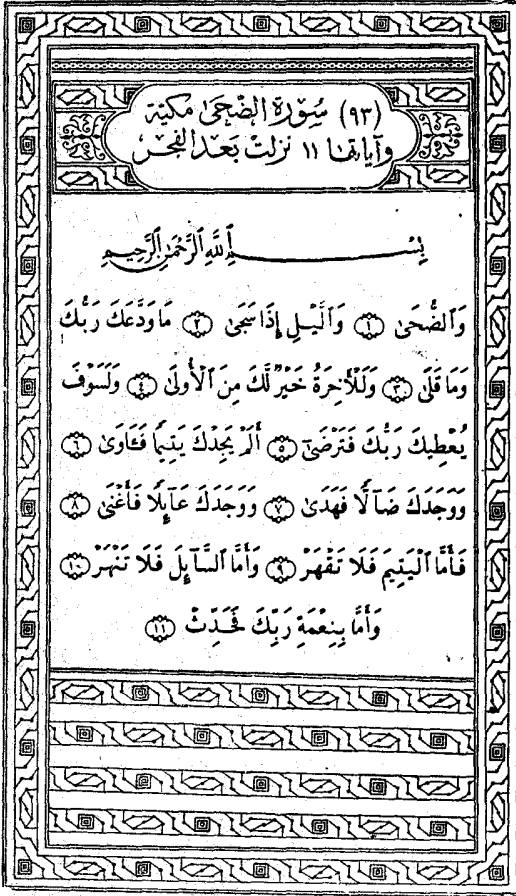 (٩٣) سُورَة الضُّحَىٰ مَكيَّة
وَآيَاتهَا ١١ نَزلتْ بَعْد الفَجْر
بِسْمِ ٱللَّهِ ٱلرَّحْمَٰنِ ٱلرَّحِيمِ
وَٱلضُّحَىٰ ١ وَٱلَّيْلِ إِذَا سَجَىٰ ٢ مَا وَدَّعَكَ رَبُّكَ
وَمَا قَلَىٰ ٣ وَلَلْأَخِرَةُ خَيْرٌ لَّكَ مِنَ ٱلْأُولَىٰ ٤ وَلَسَوْفَ
يُعْطِيكَ رَبُّكَ فَتَرْضَىٰٓ ٥ أَلَمْ يَجِدْكَ يَتِيمًا فَـَٔاوَىٰ ٦
وَوَجَدَكَ ضَآلًّا فَهَدَىٰ ٧ وَوَجَدَكَ عَآئِلًا فَأَغْنَىٰ ٨
فَأَمَّا ٱلْيَتِيمَ فَلَا تَقْهَرْ ٩ وَأَمَّا ٱلسَّآئِلَ فَلَا تَنْهَرْ ١٠
وَأَمَّا بِنِعْمَةِ رَبِّكَ فَحَدِّثْ ١١